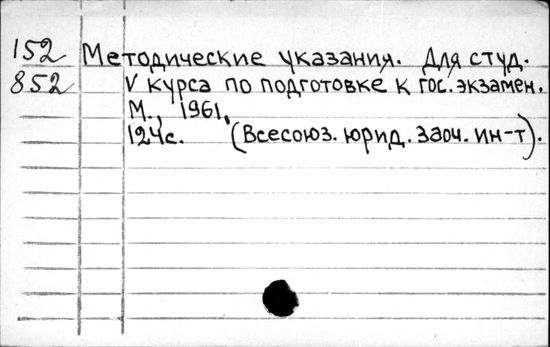 152 Методические указания. Для студ.
852 V курса по подготовке к гос. экзамен.
М., 1961.
124с. (Всесоюз. юрид. заоч. ин-т).